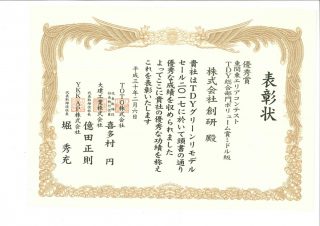 表彰状
優秀賞
恵関東エリアコンテスト
TDY総合部門ボリューム賞ミドル級
株式会社創研 殿
貴社はTDYグリーンリモデル
セール二〇一七に於いて頭書の通り
優秀な成績を収められました
よってここに貴社の優秀な功績を称え
これを表彰いたします
平成三十年二月六日
TOTO株式会社
喜多村 円
大建工業株式会社
億田正則
YKK AP株式会社
堀 秀充